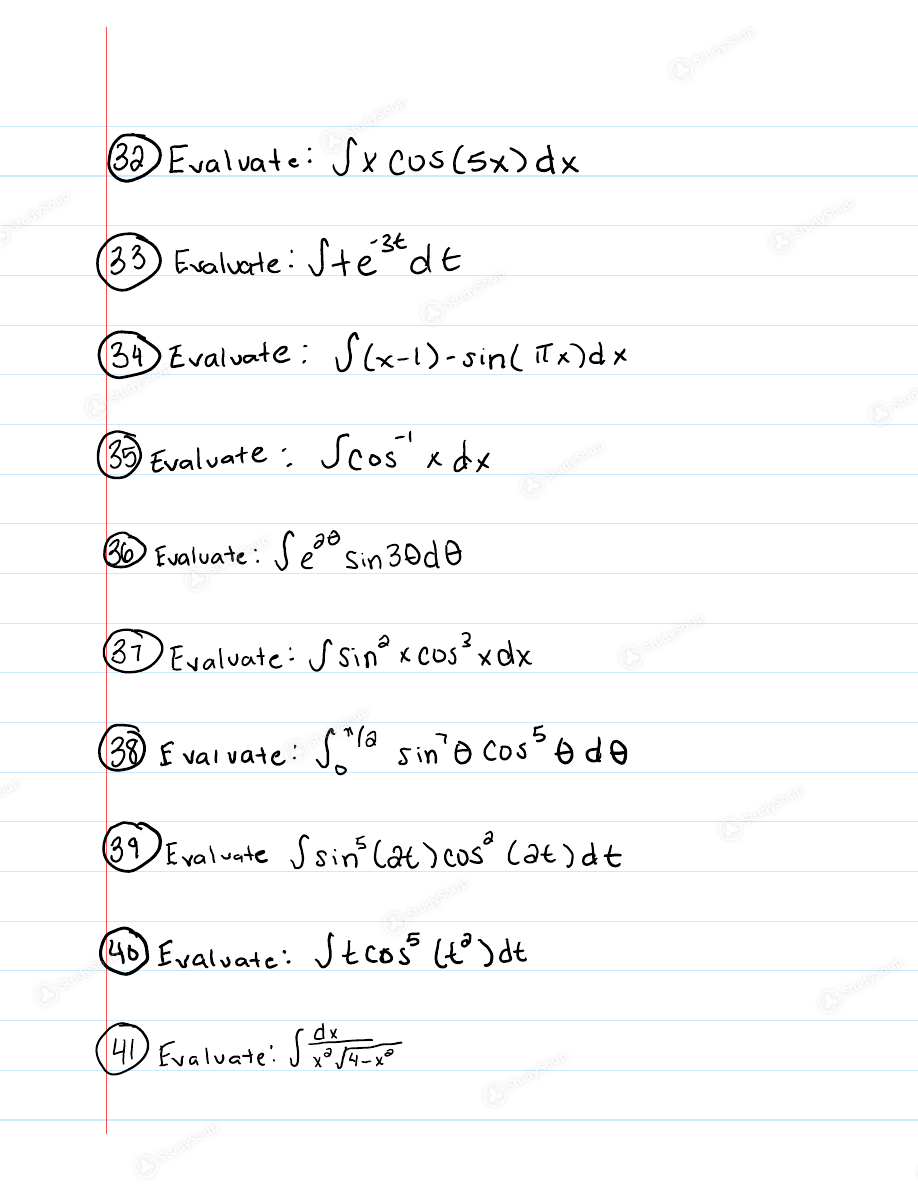 32 Evaluate: ∫x cos(5x)dx
33 Evaluate: ∫te⁻³ᵗdt
34 Evaluate: ∫(x-1)-sin(πx)dx
35 Evaluate: ∫cos⁻¹ x dx
36 Evaluate: ∫e^(2θ) sin3θdθ
37 Evaluate: ∫sin²xcos³xdx
38 Evaluate: ∫₀^(π/2) sin⁷θ cos⁵θdθ
39 Evaluate ∫sin⁵(2t)cos²(2t)dt
40 Evaluate: ∫tcos⁵(t²)dt
41 Evaluate: ∫dx/(x²√(4-x²))